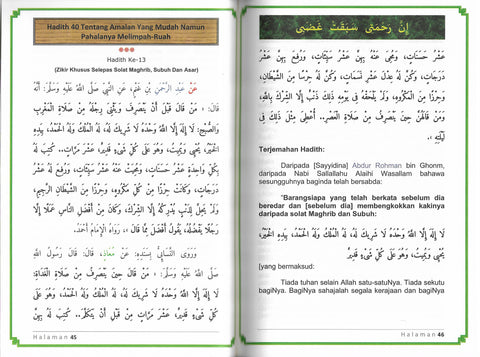 Hadith 40 Tentang Amalan Yang Mudah Namun
Pahalanya Melimpah-Ruah
Hadith Ke-13
(Zikir Khusus Selepas Solat Maghrib, Subuh Dan Asar)
عَنْ عَبْدِ الرَّحْمَنِ بْنِ غَنْمٍ، عَنِ النَّبِيِّ صَلَّى اللَّهُ عَلَيْهِ وَسَلَّمَ: أَنَّهُ
قَالَ: « مَنْ قَالَ قَبْلَ أَنْ يَنْصَرِفَ وَيَثْنِيَ رِجْلَهُ مِنْ صَلَاةِ الْمَغْرِبِ
وَالصُّبْحِ: لَا إِلَهَ إِلَّا اللَّهُ وَحْدَهُ لَا شَرِيكَ لَهُ، لَهُ الْمُلْكُ وَلَهُ الْحَمْدُ، بِيَدِهِ
الْخَيْرُ، يُحْيِي وَيُمِيتُ، وَهُوَ عَلَى كُلِّ شَيْءٍ قَدِيرٌ، عَشْرَ مَرَّاتٍ.. كُتِبَ لَهُ
بِكُلِّ وَاحِدَةٍ عَشْرُ حَسَنَاتٍ، وَمُحِيَتْ عَنْهُ عَشْرُ سَيِّئَاتٍ، وَرُفِعَ لَهُ عَشْرُ
دَرَجَاتٍ، وَكَانَتْ حِرْزًا مِنْ كُلِّ مَكْرُوهٍ، وَحِرْزًا مِنَ الشَّيْطَانِ الرَّجِيمِ،
وَلَمْ يَحِلَّ لِذَنْبٍ يُدْرِكُهُ إِلَّا الشِّرْكَ، وَكَانَ مِنْ أَفْضَلِ النَّاسِ عَمَلًا إِلَّا
رَجُلًا يَفْضُلُهُ، يَقُولُ أَفْضَلَ مِمَّا قَالَ »، رَوَاهُ الْإِمَامُ أَحْمَدُ.
وَرَوَى النَّسَائِيُّ بِسَنَدِهِ: عَنْ مُعَاذٍ، قَالَ: قَالَ رَسُولُ اللَّهِ
صَلَّى اللَّهُ عَلَيْهِ وَسَلَّمَ: « مَنْ قَالَ حِينَ يَنْصَرِفُ مِنْ صَلَاةِ الْغَدَاةِ:
لَا إِلَهَ إِلَّا اللَّهُ وَحْدَهُ لَا شَرِيكَ لَهُ، لَهُ الْمُلْكُ وَلَهُ الْحَمْدُ، بِيَدِهِ الْخَيْرُ، وَهُوَ عَلَى
كُلِّ شَيْءٍ قَدِيرٌ، عَشْرَ مَرَّاتٍ مِنْ قَبْلِ أَنْ يَتَكَلَّمَ.. كُتِبَ لَهُ بِهِنَّ
Halaman 45
إِنَّ رَحْمَتِي سَبَقَتْ غَضَبِي
عَشْرُ حَسَنَاتٍ، وَمُحِيَ عَنْهُ بِهِنَّ عَشْرُ سَيِّئَاتٍ، وَرُفِعَ بِهِنَّ عَشْرُ
دَرَجَاتٍ، وَكُنَّ لَهُ عِدْلَ عَشْرِ نَسَمَاتٍ، وَكُنَّ لَهُ حَرَسًا مِنَ الشَّيْطَانِ،
وَحِرْزًا مِنَ الْمَكْرُوهِ، وَلَمْ يَلْحَقْهُ فِي يَوْمِهِ ذَلِكَ ذَنْبٌ إِلَّا الشِّرْكَ بِاللَّهِ،
وَمَنْ قَالَهُنَّ حِينَ يَنْصَرِفُ مِنْ صَلَاةِ الْعَصْرِ.. أُعْطِيَ مِثْلَ ذَلِكَ فِي
لَيْلَتِهِ ».
Terjemahan Hadith:
Daripada [Sayyidina] Abdur Rohman bin Ghonm,
daripada Nabi Sallallahu Alaihi Wasallam bahawa
sesungguhnya baginda telah bersabda:
"Barangsiapa yang telah berkata sebelum dia
beredar dan [sebelum dia] membengkokkan kakinya
daripada solat Maghrib dan Subuh:
لَا إِلَهَ إِلَّا اللَّهُ وَحْدَهُ لَا شَرِيكَ لَهُ، لَهُ الْمُلْكُ وَلَهُ الْحَمْدُ، بِيَدِهِ الْخَيْرُ،
يُحْيِي وَيُمِيتُ، وَهُوَ عَلَى كُلِّ شَيْءٍ قَدِيرٌ
[yang bermaksud:
Tiada tuhan selain Allah satu-satuNya. Tiada sekutu
bagiNya. BagiNya sahajalah segala kerajaan dan bagiNya
Halaman 46